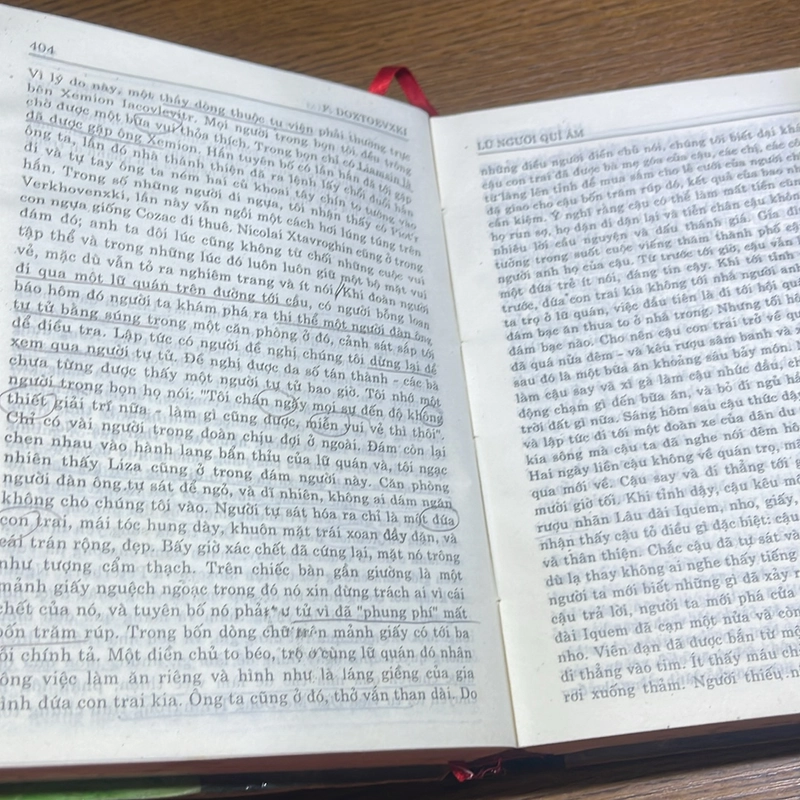 404
F. DOXTOEVXKI
Vì lý do này, một thầy dòng thuộc tu viện phải thường trực
bên Xemion Iacovlevitr. Mọi người trong bọn tôi đều trông
chờ được một bữa vui thỏa thích. Trong bọn chỉ có Liamsin là
đã được gặp ông Xemion. Hắn tuyên bố có lần hắn đã tới gặp
ông ta, lần đó nhà thánh thiện đã ra lệnh lấy chổi đuổi hắn
đi và tự tay ông ta ném hai củ khoai tây chín to tướng vào
hắn. Trong số những người đi ngựa, tôi nhận thấy có Piot'r
Verkhovenxki, lần này vẫn ngồi một cách hơi lúng túng trên
con ngựa giống Cozac đi thuê. Nicolai Xtavroghin cũng ở trong
đám đó; anh ta đôi lúc cũng không từ chối những cuộc vui
tập thể và trong những lúc đó luôn luôn giữ một bộ mặt vui
vẻ, mặc dù vẫn tỏ ra nghiêm trang và ít nói. Khi đoàn người
đi qua một lữ quán trên đường tới cầu, có người bỗng loan
báo hôm đó người ta khám phá ra thi thể một người đàn ông
tự tử bằng súng trong một căn phòng ở đó, cảnh sát sắp tới
để điều tra. Lập tức có người đề nghị chúng tôi dừng lại để
xem qua người tự tử. Đề nghị được đa số tán thành - các bà
chưa từng được thấy một người tự tử bao giờ. Tôi nhớ một
người trong bọn họ nói: "Tôi chán ngấy mọi sự đến độ không
thiết giải trí nữa - làm gì cũng được, miễn vui vẻ thì thôi".
Chỉ có vài người trong đoàn chịu đợi ở ngoài. Đám còn lại
chen nhau vào hành lang bẩn thỉu của lữ quán và, tôi ngạc
nhiên thấy Liza cũng ở trong đám người này. Căn phòng
người đàn ông tự sát để ngỏ, và dĩ nhiên, không ai dám ngăn
không cho chúng tôi vào. Người tự sát hóa ra chỉ là một đứa
con trai, mái tóc hung dày, khuôn mặt trái xoan đầy dặn, và
cái trán rộng, đẹp. Bấy giờ xác chết đã cứng lại, mặt nó trông
như tượng cẩm thạch. Trên chiếc bàn gần giường là một
mảnh giấy nguệch ngoạc trong đó nó xin đừng trách ai vì cái
chết của nó, và tuyên bố nó phải tự tử vì đã "phung phí" mất
bốn trăm rúp. Trong bốn dòng chữ trên mảnh giấy có tới ba
lỗi chính tả. Một điền chủ to béo, trọ ở cùng lữ quán đó nhân
công việc làm ăn riêng và hình như là láng giềng của gia
đình đứa con trai kia. Ông ta cũng ở đó, thở vắn than dài. Do
LŨ NGƯỜI QUỈ ÁM
những điều người điền chủ nói, chúng tôi biết đại khái
cậu con trai đã được bà mẹ góa của cậu, các chị, các cô
từ làng lên tỉnh để mua sắm cho lễ cưới của người chị
đã giao cho cậu bốn trăm rúp đó, kết quả của bao nhiêu
cần kiệm. Ý nghĩ rằng cậu có thể làm mất tiền cũng
họ run sợ, họ dặn đi dặn lại và tiễn chân cậu không
nhiều lời cầu nguyện và dấu thánh giá. Gia đình
tưởng trong suốt cuộc viếng thăm thành phố cậu
người anh họ của cậu. Từ trước tới giờ, cậu vẫn
một đứa trẻ ít nói, đáng tin cậy. Khi tới tỉnh
trước, đứa con trai kia không tới nhà người anh
ta trọ ở lữ quán, việc đầu tiên là đi tới hội quán
đám bạc ăn thua to ở nhà trong. Nhưng tối hôm
đám bạc nào. Cho nên cậu con trai trở về quán
đã quá nửa đêm - và kêu rượu sâm banh và xì
sau đó là một bữa ăn khoảng sáu bảy món.
làm cậu say và xì gà làm cậu nhức đầu,
động chạm gì đến bữa ăn, và bỏ đi ngủ
trời đất gì nữa. Sáng hôm sau cậu thức dậy
và lập tức đi tới một đoàn xe của dân du
kia sông mà cậu ta đã nghe nói đêm hôm
Hai ngày liền cậu không về quán trọ, mãi
qua mới về. Cậu say và đi thẳng tới
mười giờ tối. Khi tỉnh dậy, cậu kêu một
rượu nhãn Lâu đài Iquem, nho, giấy,
nhận thấy cậu tỏ điều gì đặc biệt: cậu
và thân thiện. Chắc cậu đã tự sát vào
dù lạ thay không ai nghe thấy tiếng
người ta mới biết những gì đã xảy ra
cậu trả lời, người ta mới phá cửa
đài Iquem đã cạn một nửa và còn
nho. Viên đạn đã được bắn từ một
đi thẳng vào tim. Ít thấy máu chảy
rơi xuống thảm. Người thiếu